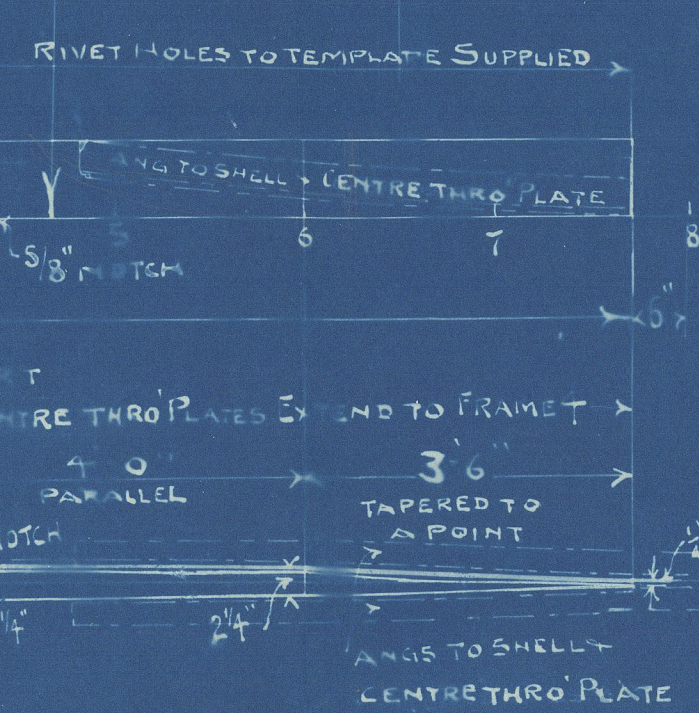 RIVET HOLES TO TEMPLATE SUPPLIED
ANG TO SHELL & CENTRE THRO' PLATE
5 6 7 8
5/8" NOTCH
6"
T
NTRE THRO' PLATES EXTEND TO FRAME 7
4' 0" 3' 6"
PARALLEL
TAPERED TO
A POINT
OTCH
1/4" 2 1/4"
ANGS TO SHELL &
CENTRE THRO' PLATE